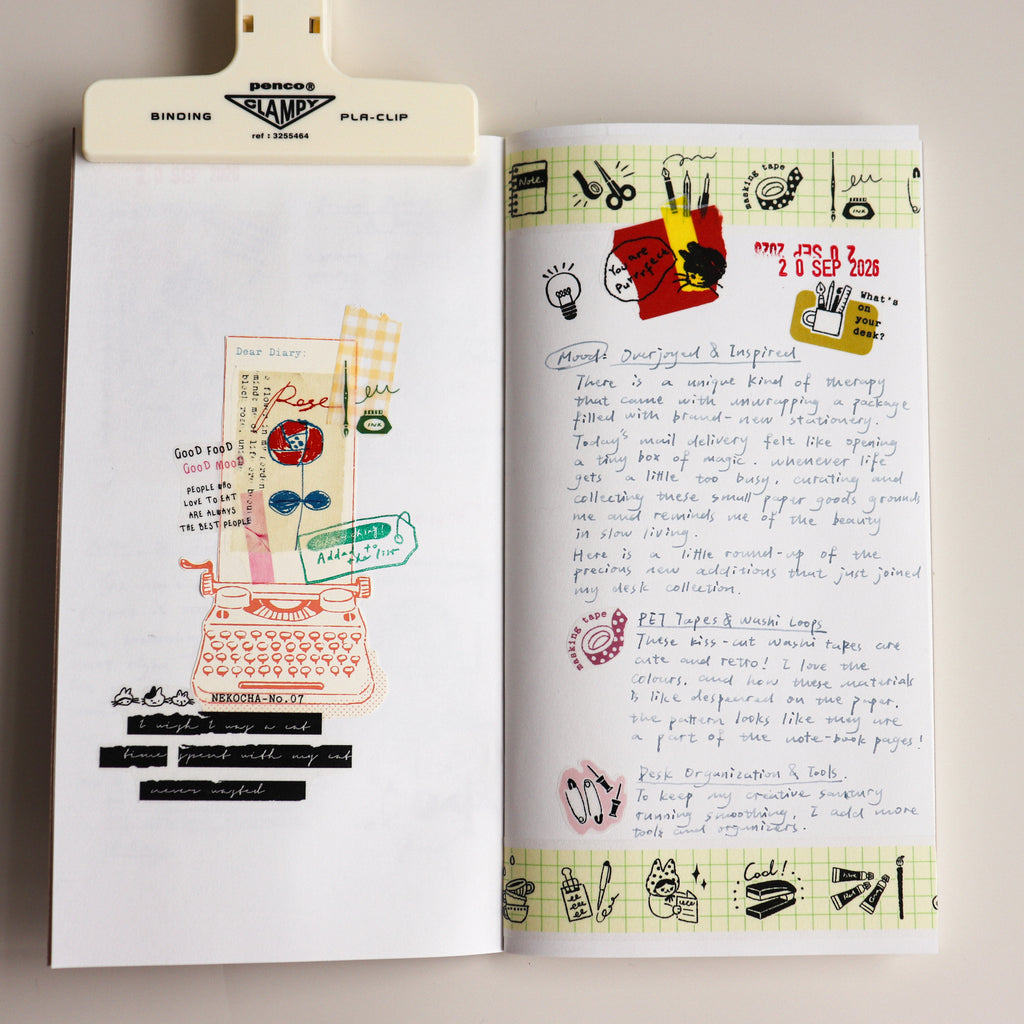 penco®
CLAMPY
BINDING PLA-CLIP
ref : 3255464
Dear Diary:
a flower in my garden
minds me of life are beauti
black rose, under
Rose
INK
GOOD FOOD
GOOD MOOD
PEOPLE WHO
LOVE TO EAT
ARE ALWAYS
THE BEST PEOPLE
Added to
the list
NEKOCHA-No.07
I wish I was a cat
time spent with my cat
never wasted
Note.
masking tape
INK
You are
Purrfect
20 SEP 2020
20 SEP 2026
What's
on
your
desk?
Mood: Overjoyed & Inspired
There is a unique kind of therapy
that came with unwrapping a package
filled with brand-new stationery.
Today's mail delivery felt like opening
a tiny box of magic. whenever life
gets a little too busy, curating and
collecting these small paper goods grounds
me and reminds me of the beauty
in slow living.
Here is a little round-up of the
precious new additions that just joined
my desk collection.
masking tape
PET Tapes & Washi Loops
These kiss-cut washi tapes are
cute and retro! I love the
colours, and how these materials
is like despeared on the paper.
the pattern looks like they are
a part of the note-book pages!
Desk Organization & Tools.
To keep my creative sanctury
running smoothing, I add more
tools and organizers.
Cool!